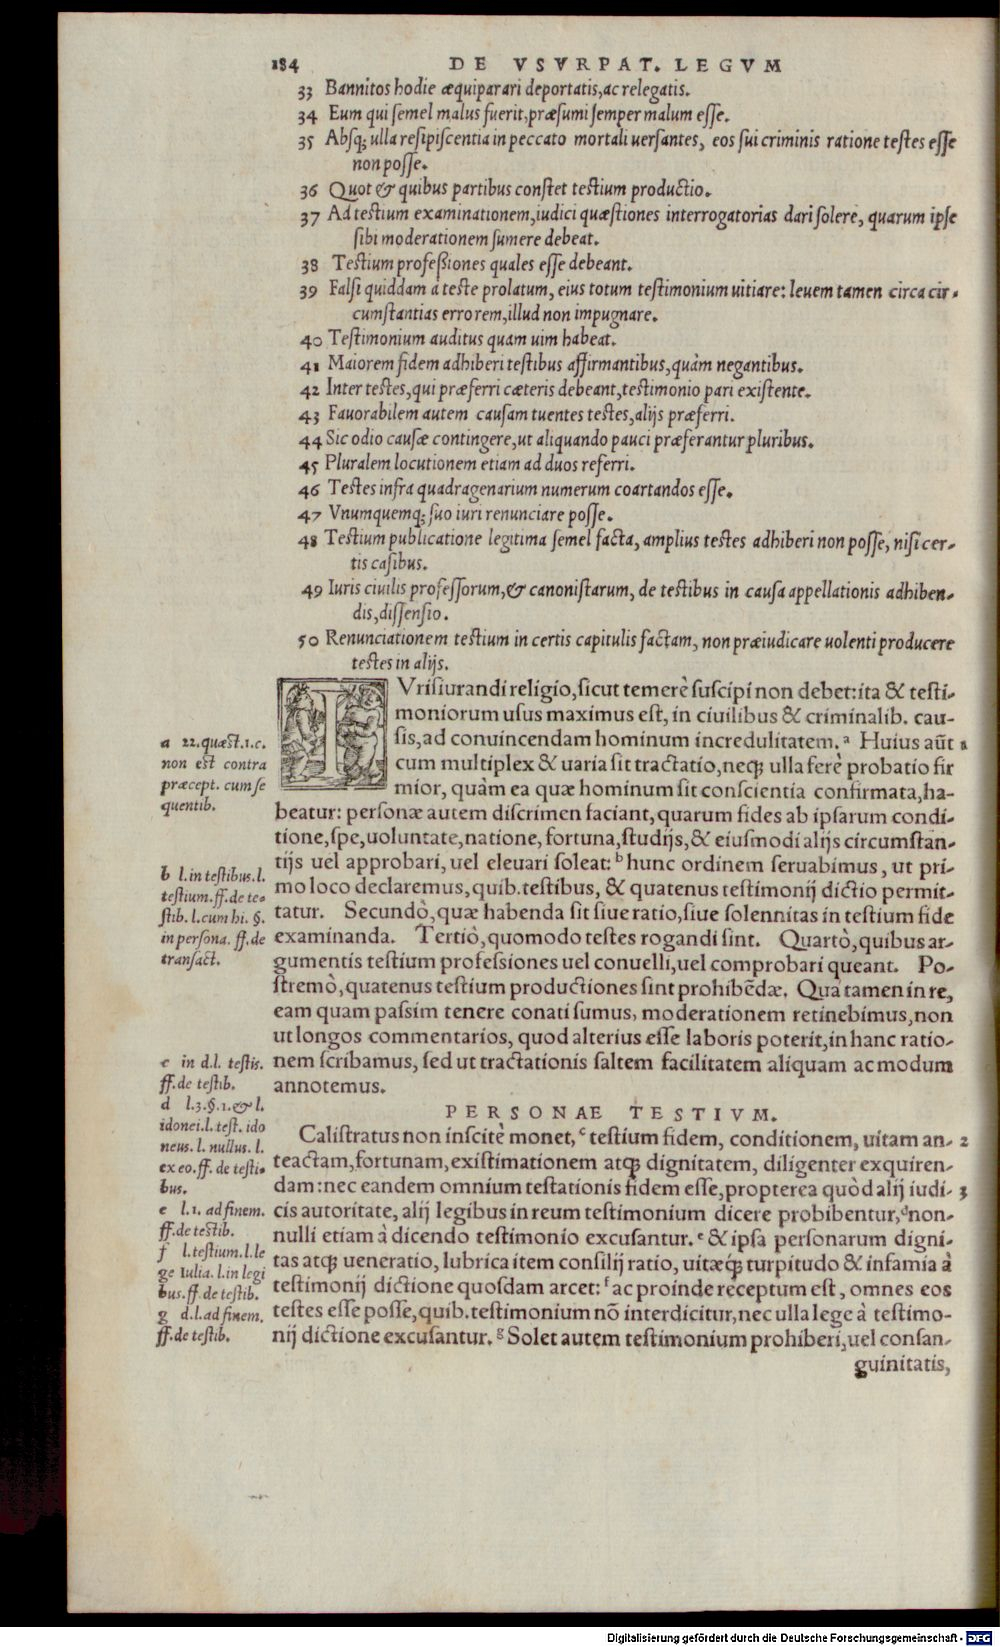 184 DE VSVRPAT. LEGVM
33 Bannitos hodie æquiparari deportatis, ac relegatis.
34 Eum qui semel malus fuerit, præsumi semper malum esse.
35 Absq; ulla resipiscentia in peccato mortali uersantes, eos sui criminis ratione testes esse
non posse.
36 Quot & quibus partibus constet testium productio.
37 Ad testium examinationem, iudici quæstiones interrogatorias dari solere, quarum ipse
sibi moderationem sumere debeat.
38 Testium professiones quales esse debeant.
39 Falsi quiddam à teste prolatum, eius totum testimonium uitiare: leuem tamen circa cir-
cumstantias errorem, illud non impugnare.
40 Testimonium auditus quam uim habeat.
41 Maiorem fidem adhiberi testibus affirmantibus, quàm negantibus.
42 Inter testes, qui præferri cæteris debeant, testimonio pari existente.
43 Fauorabilem autem causam tuentes testes, alijs præferri.
44 Sic odio causæ contingere, ut aliquando pauci præferantur pluribus.
45 Pluralem locutionem etiam ad duos referri.
46 Testes infra quadragenarium numerum coartandos esse.
47 Vnumquemq; suo iuri renunciare posse.
48 Testium publicatione legitima semel facta, amplius testes adhiberi non posse, nisi cer-
tis casibus.
49 Iuris ciuilis professorum, & canonistarum, de testibus in causa appellationis adhiben-
dis, dissensio.
50 Renunciationem testium in certis capitulis factam, non præiudicare uolenti producere
testes in alijs.
IVrisiurandi religio, sicut temerè suscipi non debet: ita & testi-
moniorum usus maximus est, in ciuilibus & criminalib. cau-
sis, ad conuincendam hominum incredulitatem.ᵃ Huius aũt 1
cum multiplex & uaria sit tractatio, neq; ulla ferè probatio fir
mior, quàm ea quæ hominum sit conscientia confirmata, ha-
beatur: personæ autem discrimen faciant, quarum fides ab ipsarum condi-
tione, spe, uoluntate, natione, fortuna, studijs, & eiusmodi alijs circumstan-
tijs uel approbari, uel eleuari soleat: ᵇ hunc ordinem seruabimus, ut pri-
mo loco declaremus, quib. testibus, & quatenus testimonij dictio permit-
tatur. Secundò, quæ habenda sit siue ratio, siue solennitas in testium fide
examinanda. Tertiò, quomodo testes rogandi sint. Quartò, quibus ar-
gumentis testium professiones uel conuelli, uel comprobari queant. Po-
stremò, quatenus testium productiones sint prohibẽdæ. Qua tamen in re,
eam quam passim tenere conati sumus, moderationem retinebimus, non
ut longos commentarios, quod alterius esse laboris poterit, in hanc ratio-
nem scribamus, sed ut tractationis saltem facilitatem aliquam ac modum
annotemus.
PERSONAE TESTIVM.
Calistratus non inscitè monet, ᶜ testium fidem, conditionem, uitam an- 2
teactam, fortunam, existimationem atq; dignitatem, diligenter exquiren-
dam: nec eandem omnium testationis fidem esse, propterea quòd alij iudi- 3
cis autoritate, alij legibus in reum testimonium dicere probibentur, ᵈ non-
nulli etiam à dicendo testimonio excusantur. ᵉ & ipsa personarum digni-
tas atq; ueneratio, lubrica item consilij ratio, uitæq́; turpitudo & infamia à
testimonij dictione quosdam arcet: ᶠ ac proinde receptum est, omnes eos
testes esse posse, quib. testimonium nõ interdicitur, nec ulla lege à testimo-
nij dictione excusantur. ᵍ Solet autem testimonium prohiberi, uel consan-
guinitatis,
a 22. quæst. 1. c.
non est contra
præcept. cum se
quentib.
b l. in testibus. l.
testium. ff. de te-
stib. l. cum hi. §.
in persona. ff. de
transact.
c in d. l. testis.
ff. de testib.
d l. 3. §. 1. & l.
idonei. l. test. ido
neus. l. nullus. l.
ex eo. ff. de testi-
bus.
e l. 1. ad finem.
ff. de testib.
f l. testium. l. le
ge Iulia. l. in legi
bus. ff. de testib.
g d. l. ad finem.
ff. de testib.
Digitalisierung gefördert durch die Deutsche Forschungsgemeinschaft - DFG